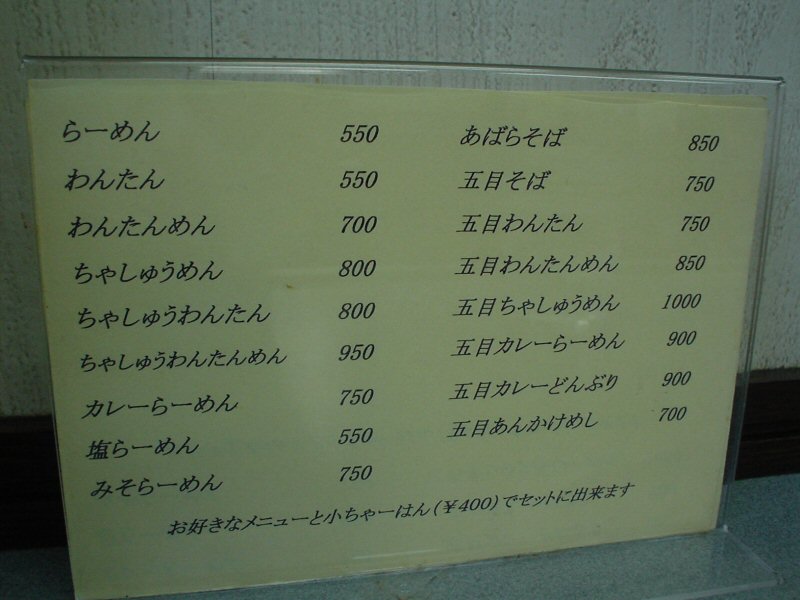 らーめん 550
わんたん 550
わんたんめん 700
ちゃしゅうめん 800
ちゃしゅうわんたん 800
ちゃしゅうわんたんめん 950
カレーらーめん 750
塩らーめん 550
みそらーめん 750
あばらそば 850
五目そば 750
五目わんたん 750
五目わんたんめん 850
五目ちゃしゅうめん 1000
五目カレーらーめん 900
五目カレーどんぶり 900
五目あんかけめし 700
お好きなメニューと小ちゃーはん(￥400)でセットに出来ます